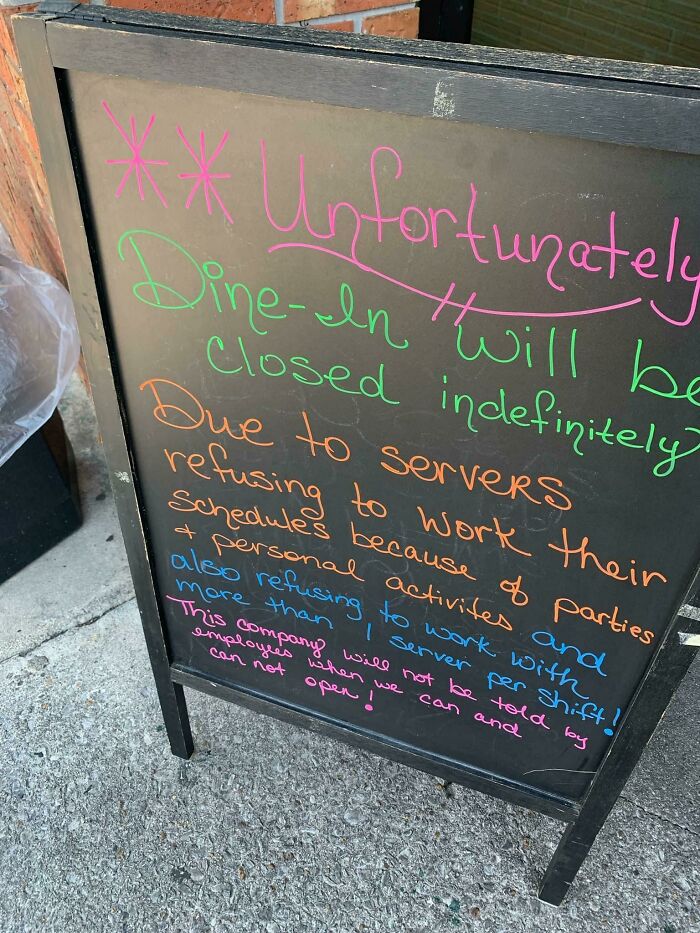 ** Unfortunately
Dine-In will be
closed indefinitely
Due to servers
refusing to work their
schedules because of parties
+ personal activites and
also refusing to work with
more than 1 server per shift!
This company will not be told by
employees when we can and
can not open!